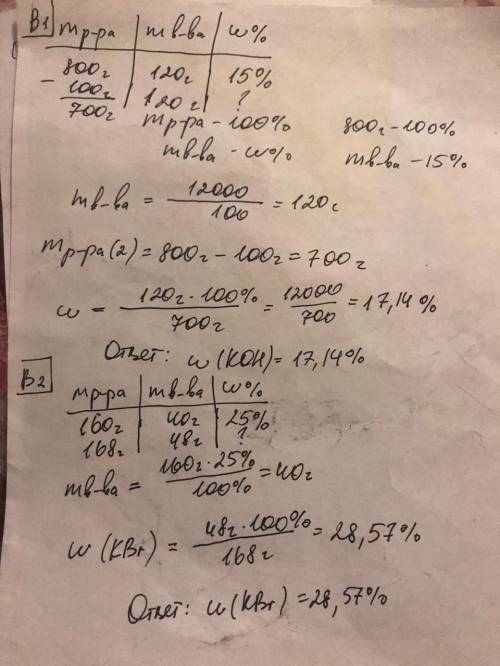 В1
mр-ра | mв-ва | w%
800г | 120г | 15%
− 100г | 120г | ?
700г
mр-ра – 100% 800г – 100%
mв-ва – w% mв-ва – 15%
mв-ва = 12000/100 = 120г
mр-ра(2) = 800г – 100г = 700г
w = 120г · 100%/700г = 12000/700 = 17,14%
Ответ: w(KOH) = 17,14%
В2
mр-ра | mв-ва | w%
160г | 40г | 25%
168г | 48г | ?
mв-ва = 160г · 25%/100% = 40г
w(KBr) = 48г · 100%/168г = 28,57%
Ответ: w(KBr) = 28,57%